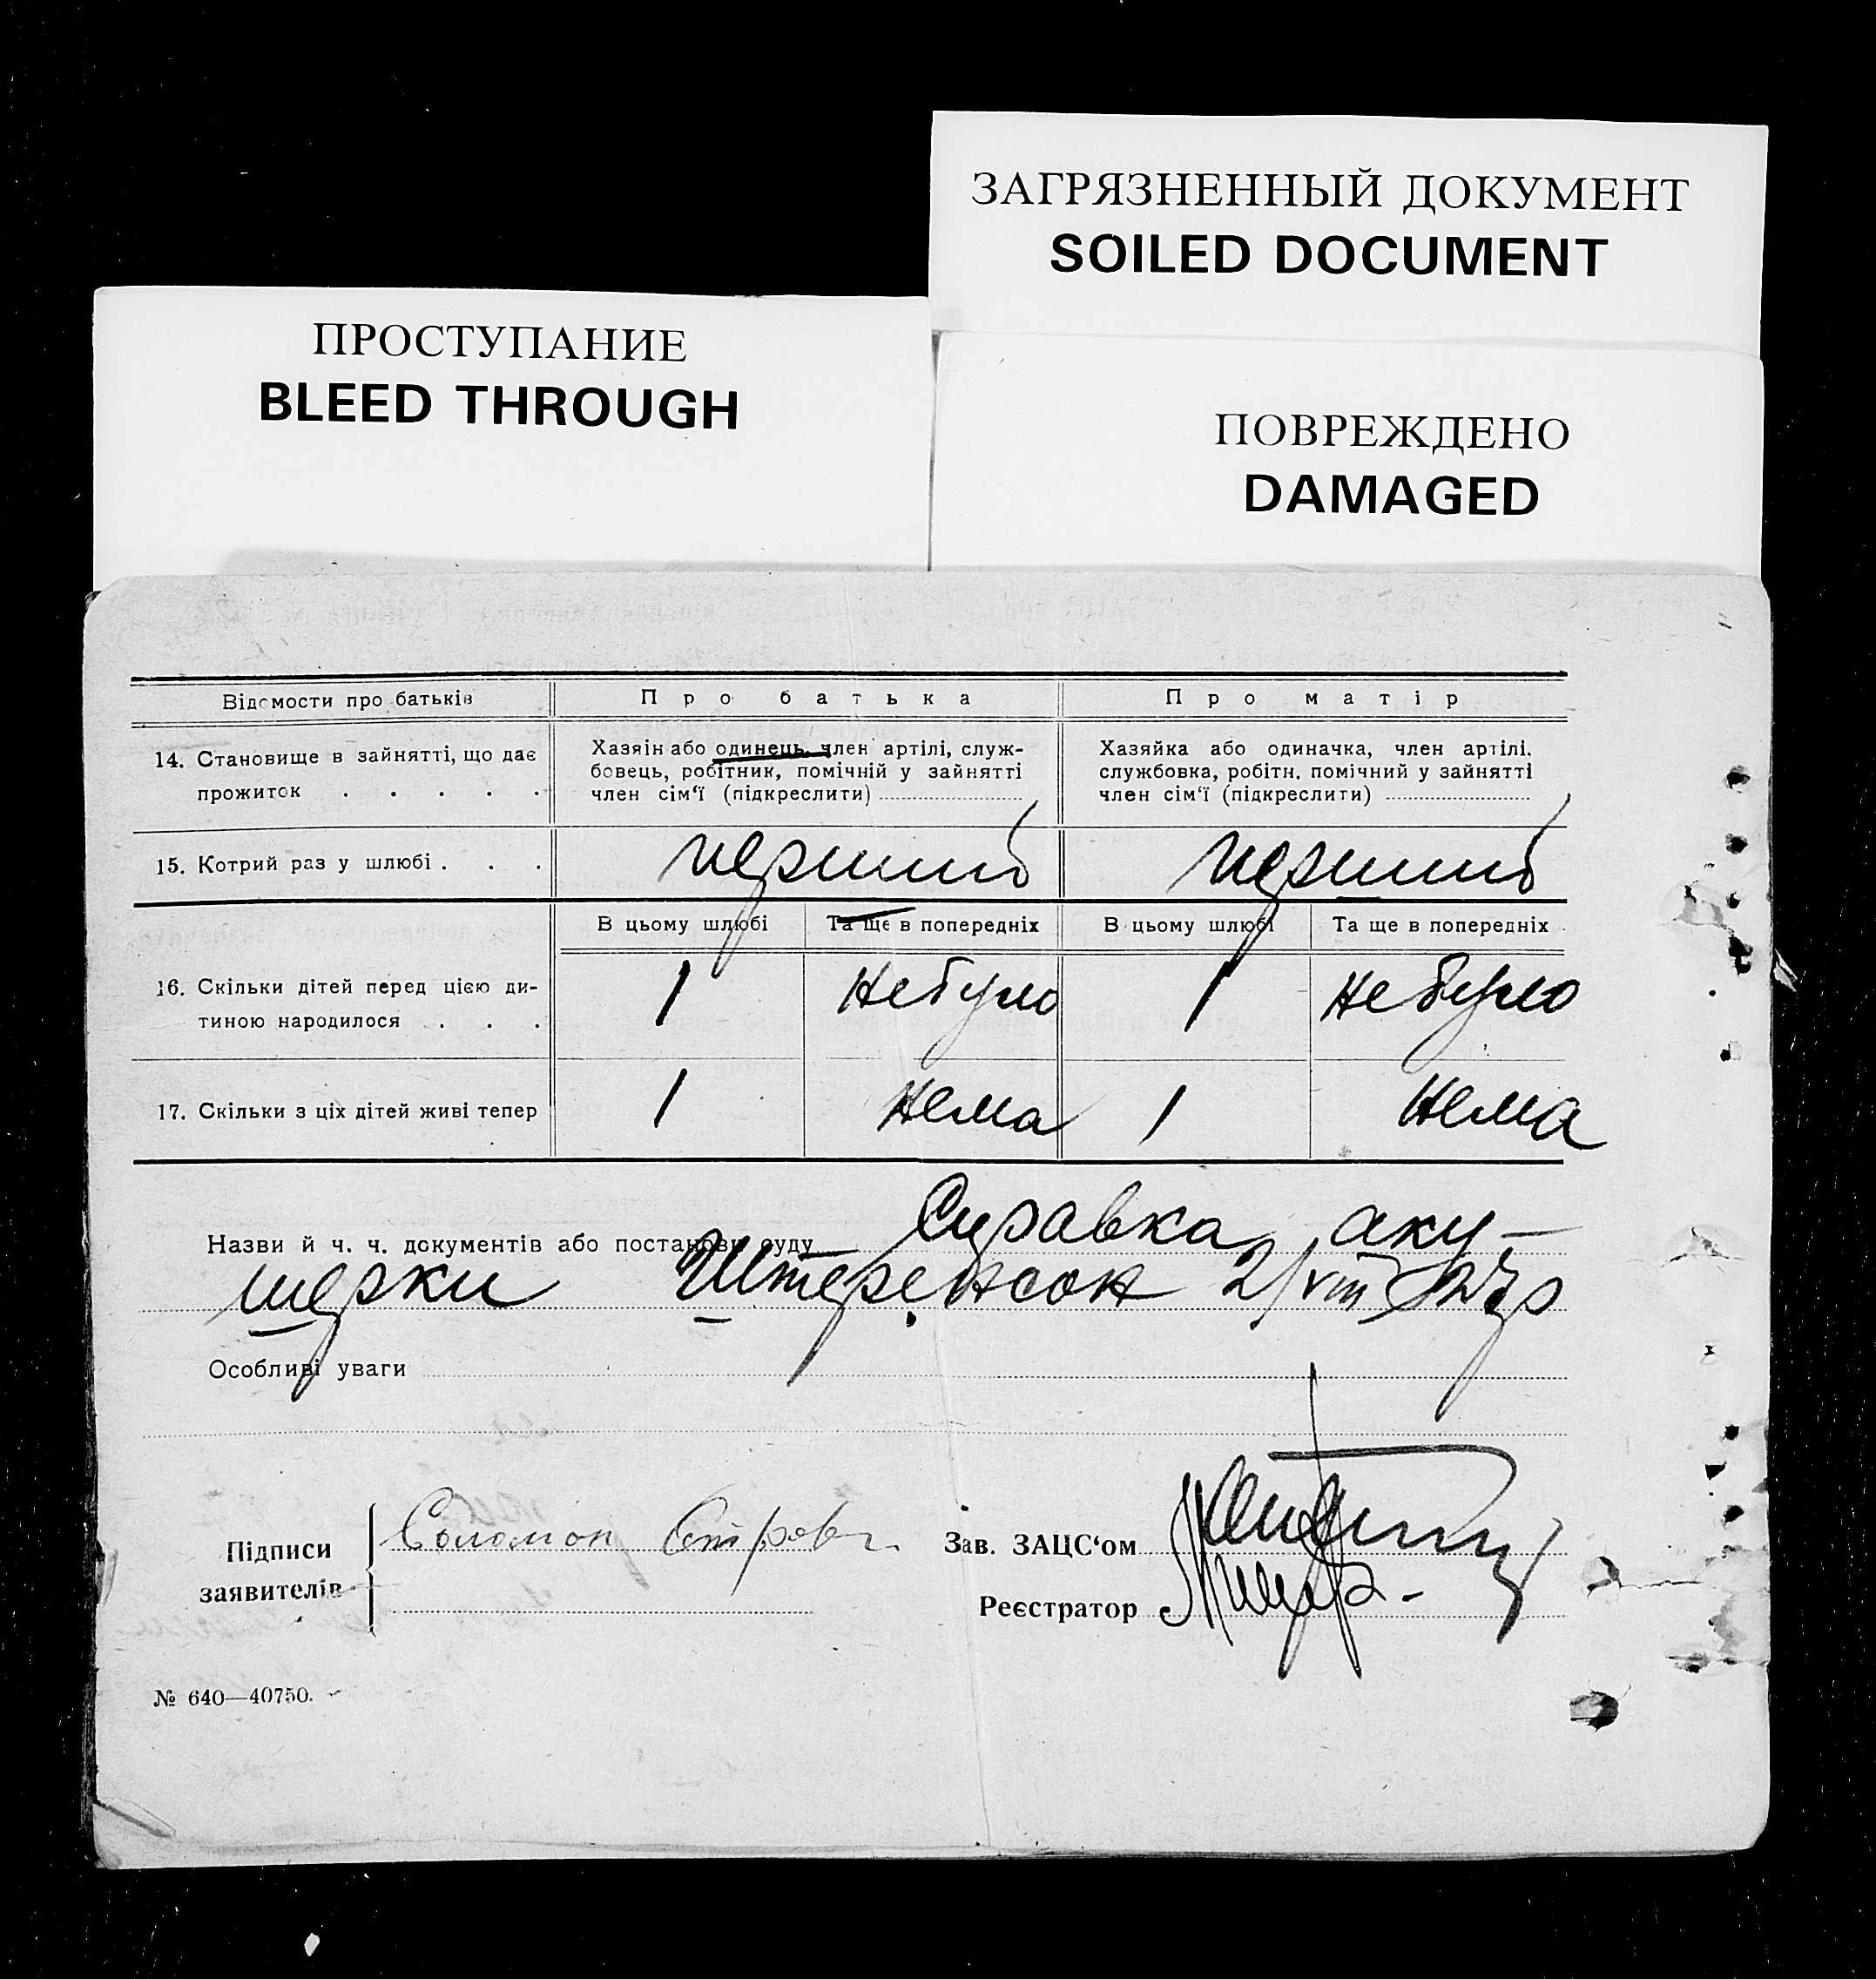 ЗАГРЯЗНЕННЫЙ ДОКУМЕНТ
SOILED DOCUMENT
ПРОСТУПАНИЕ
BLEED THROUGH
ПОВРЕЖДЕНО
DAMAGED
Відомости про батьків
Про батька
Про матір
14. Становище в зайнятті, що дає
прожиток . . . . .
Хазяін або одинець, член артілі, служ-
бовець, робітник, помічній у зайнятті
член сім‘ї (підкреслити)
Хазяйка або одиначка, член артілі,
службовка, робітн. помічний у зайнятті
член сім‘ї (підкреслити)
15. Котрий раз у шлюбі . . .
перший
перший
В цьому шлюбі
Та ще в попередніх
В цьому шлюбі
Та ще в попередніх
16. Скільки дітей перед цією ди-
тиною народилося . . .
1
не було
1
не було
17. Скільки з ціх дітей живі тепер
1
нема
1
нема
Назви й ч. ч. документів або постанови суду Справка аку-
шерки Штеренсон 2/VIII 27р
Особливі уваги
Підписи
заявителів
Соломон
Зав. ЗАЦС‘ом
Реєстратор
№ 640—40750.